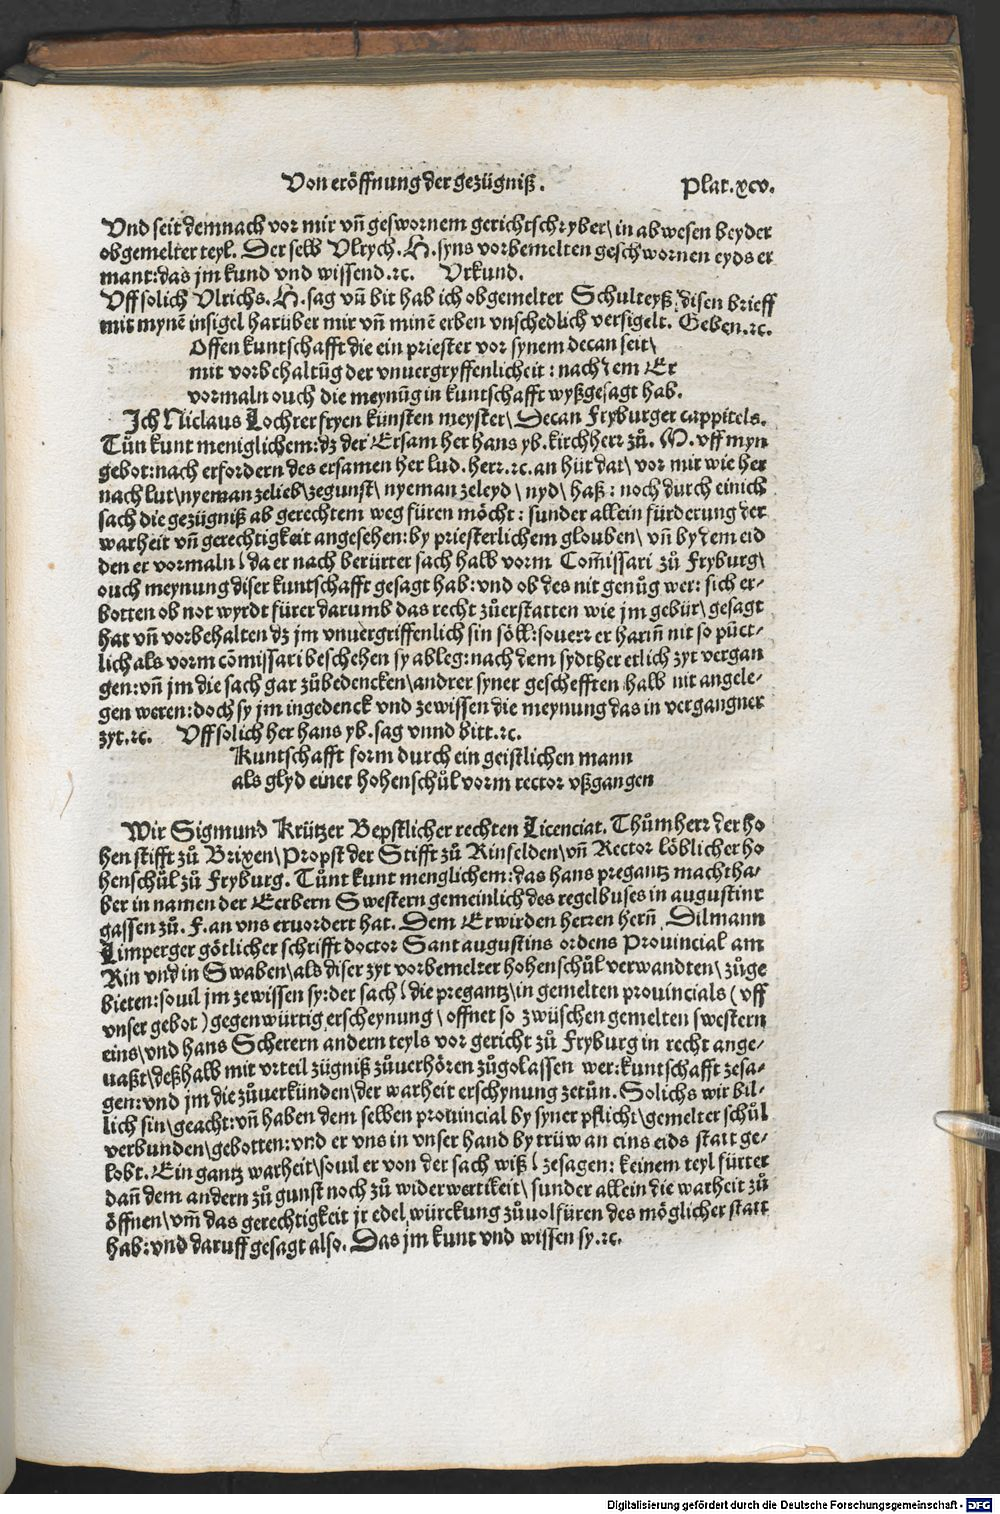 Von eröffnung der gezügniß. Plat.xcv.
Vnd seit demnach vor mir vñ geswornem gerichtschryber\ in abwesen beyder
obgemelter teyl. Der selb Vlrych. H. syns vorbemelten geschwornen eyds er
mant: das jm kund vnd wissend.⁊c. Vrkund.
Vff solich Vlrichs. H. sag vñ bit hab ich obgemelter Schulteyß disen brieff
mit mynē insigel harüber mir vñ minē erben vnschedlich versigelt. Geben.⁊c.
Offen kuntschafft die ein priester vor synem decan seit\
mit vorbehaltũg der vnuergryffenlicheit: nach dem Er
vormaln ouch die meynũg in kuntschafft wyßgesagt hab.
Ich Niclaus Lochrer fryen künsten meyster\ Decan Fryburger cappitels.
Tůn kunt meniglichem: dz der Ersam her hans yb. kirchherr zů. M. vff myn
gebot: nach erfordern des ersamen her lud. herr.⁊c. an hüt dat\ vor mir wie her
nach lut\ nyeman zelieb\ zegunst\ nyeman zeleyd\ nyd\ haß: noch durch einich
sach die gezügniß ab gerechtem weg füren möcht: sunder allein fürderung der
warheit vñ gerechtigkeit angesehen: by priesterlichem glouben\ vñ by dem eid
den er vormaln\ da er nach berürter sach halb vorm Com̃issari zů Fryburg\
ouch meynung diser kuntschafft gesagt hab: vnd ob des nit genůg wer: sich er-
botten ob not wyrdt fürer darumb das recht zůerstatten wie jm gebür\ gesagt
hat vñ vorbehalten dz jm vnuergriffenlich sin söll: souerr er hariñ nit so pũct-
lich als vorm cõmissari beschehen sy ableg: nach dem sydther etlich zyt vergan
gen: vñ jm die sach gar zůbedencken\ andrer syner geschefften halb nit angele-
gen weren: doch sy jm ingedenck vnd zewissen die meynung das in vergangner
zyt.⁊c. Vff solich her hans yb. sag vnnd bitt.⁊c.
Kuntschafft form durch ein geistlichen mann
als glyd einer hohenschůl vorm rector vßgangen
Wir Sigmund Krützer Bepstlicher rechten Licenciat. Thůmherr der ho
hen stifft zů Brixen\ Propst der Stifft zů Rinfelden\ vñ Rector löblicher ho
henschůl zů Fryburg. Tůnt kunt menglichem: das hans pregantz machtha-
ber in namen der Eerbern Swestern gemeinlich des regelhuses in augustinr
gassen zů. F. an vns eruordert hat. Dem Erwirden herren herñ Dilmann
Limperger götlicher schrifft doctor Sant augustins ordens Prouincial am
Rin vnd in Swaben\ als diser zyt vorbemelter hohenschůl verwandten\ zůge
bieten: souil jm zewissen sy: der sach\ die pregantz\ in gemelten prouincials (vff
vnser gebot) gegenwürtig erscheynung\ offnet so zwüschen gemelten swestern
eins\ vnd hans Scherern andern teyls vor gericht zů Fryburg in recht ange-
uaßt\ deßhalb mit vrteil zügniß zůuerhören zůgolassen wer: kuntschafft zesa-
gen: vnd jm die zůuerkünden\ der warheit erschynung zetůn. Solichs wir bil-
lich sin\ geacht: vñ haben dem selben prouincial by syner pflicht\ gemelter schůl
verbunden\ gebotten: vnd er vns in vnser hand by trüw an eins eids statt ge-
lobt. Ein gantz warheit\ souil er von der sach wiß\ zesagen: keinem teyl fürter
dañ dem andern zů gunst noch zů widerwertikeit\ sunder allein die warheit zů
öffnen\ vm̃ das gerechtigkeit jr edel würckung zůuolfüren des möglicher statt
hab: vnd daruff gesagt also. Das jm kunt vnd wissen sy.⁊c.
Digitalisierung gefördert durch die Deutsche Forschungsgemeinschaft - DFG